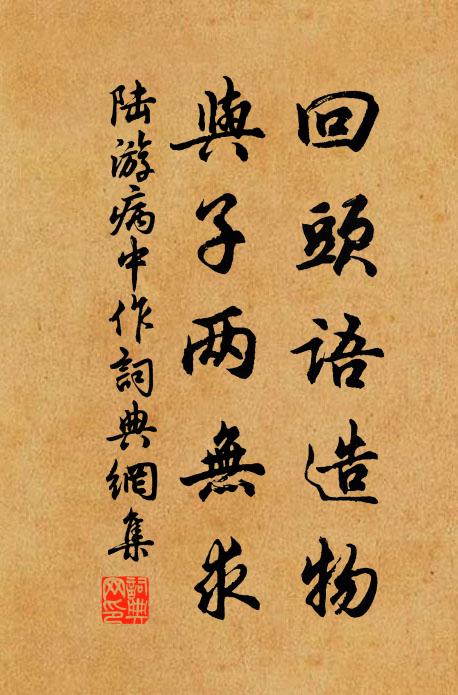 回頭語造物
與子两無求
陸游病中作詞典網集
詞典網印